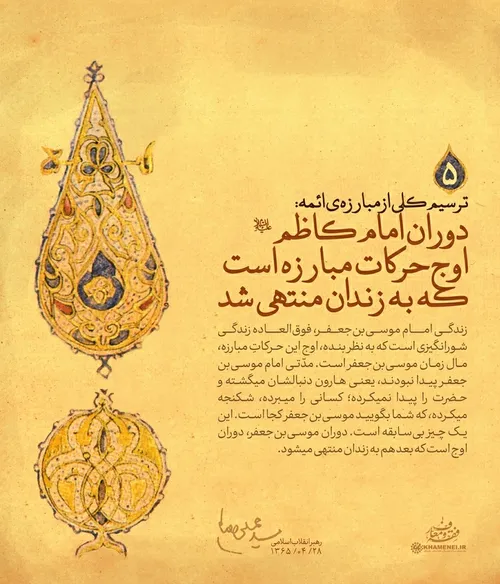 ۵
ترسیم کلی از مبارزه‌ی ائمه:
دوران امام کاظم علیه‌السلام
اوج حرکات مبارزه است
که به زندان منتهی شد
زندگی امام موسی بن جعفر، فوق‌العاده زندگی
شورانگیزی است که به نظر بنده، اوج این حرکاتِ مبارزه،
مال زمان موسی بن جعفر است. مدّتی امام موسی بن
جعفر پیدا نبودند، یعنی هارون دنبالشان میگشته و
حضرت را پیدا نمیکرده؛ کسانی را میبرده، شکنجه
میکرده، که شما بگویید موسی بن جعفر کجا است. این
یک چیز بی‌سابقه است. دوران موسی بن جعفر، دوران
اوج است که بعد هم به زندان منتهی میشود.
رهبر انقلاب اسلامی
۱۳۶۵/۰۴/۲۸
KHAMENEI.IR